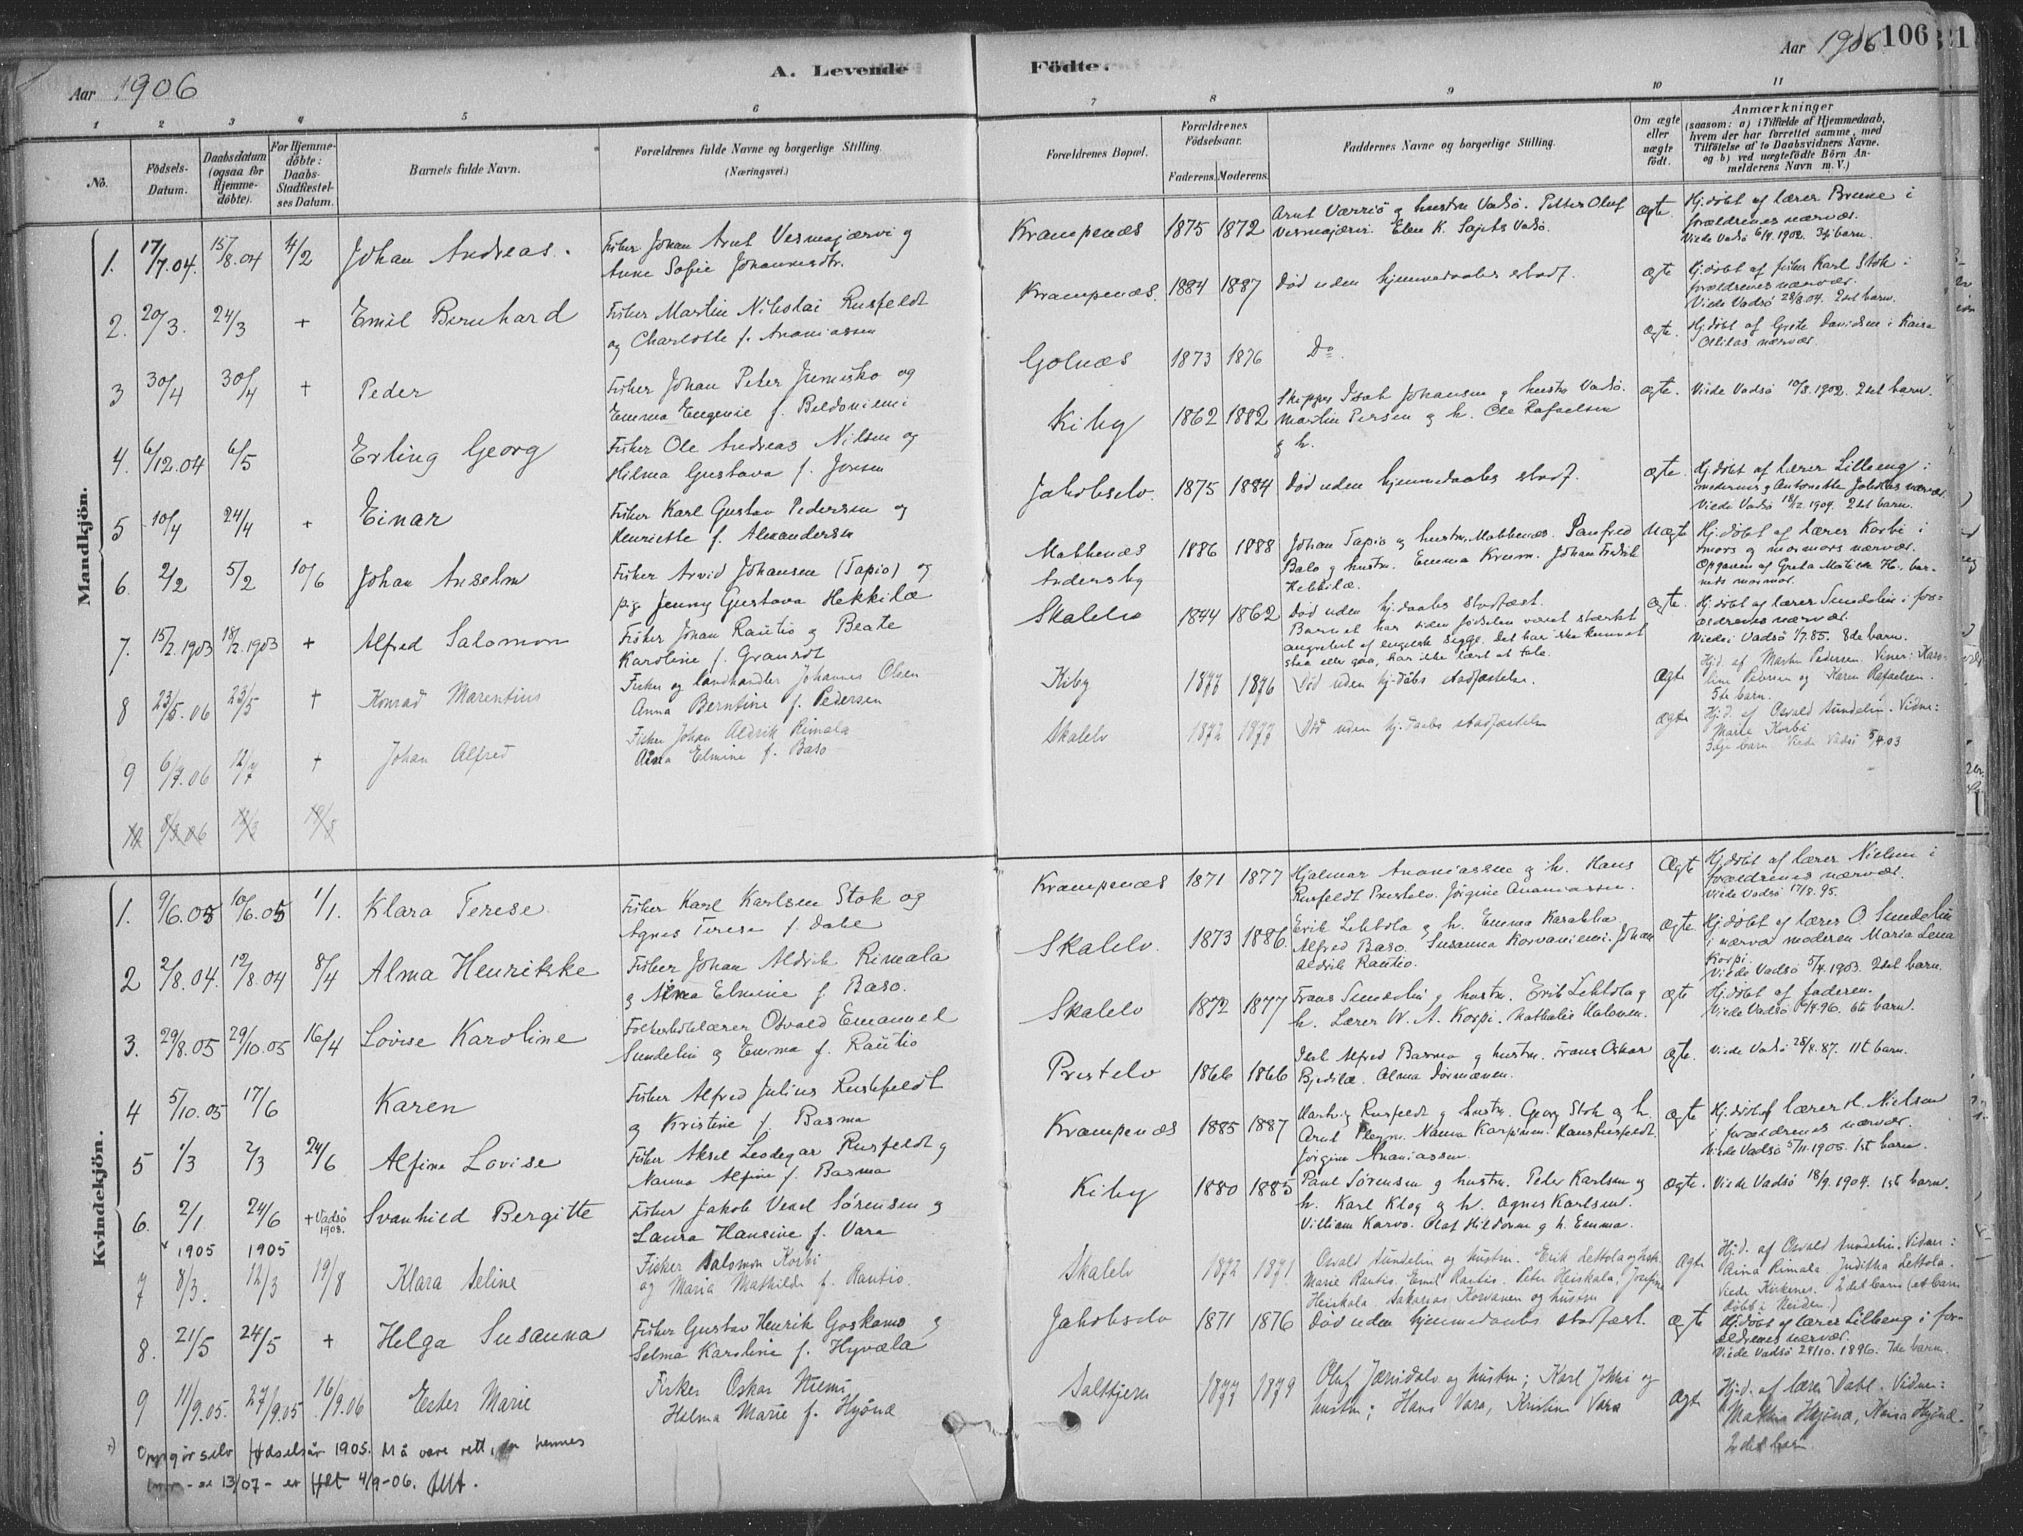 Aar 1906
A. Levende
Födte.
Aar 1906
106
1 2 3 4 5 6 7 8 9 10 11
No.
Födsels-Datum.
Daabsdatum (ogsaa for Hjemmedöbte).
For Hjemmedöbte: Daabs-Stadfæstelses Datum.
Barnets fulde Navn.
Forældrenes fulde Navne og borgerlige Stilling.
(Næringsvei.)
Forældrenes Bopæl.
Forældrenes Födselsaar.
Faderens. Moderens.
Faddernes Navne og borgerlige Stilling.
Om ægte eller uægte födt.
Anmærkninger
(saasom: a) i Tilfælde af Hjemmedaab,
hvem der har forrettet samme, med
Tilföielse af to Daabsvidners Navne.
og b) ved uægtefödte Börn Anmelderens Navn m. V.)
Mandkjön.
1. 17/7.04. 15/8.04 4/2 Johan Andreas.
Fisker Johan Arnt Vesmajærvi og
Anne Sofie Johannesdtr.
Krampenæs 1875 1872
Arnt Værriö g hustru Vadsö. Petter Oluf
Vesmajærvi. Elen K. Sajets Vadsö.
ægte.
Hj.döbt af lærer Brune i
forældrenes nærvær.
Viede Vadsö 6/4 1902. 3dj barn.
2. 20/3. 24/3 + Emil Bernhard
Fisker Martin Nikolai Rusfeldt
og Charlotte f. Ananiassen
Krampenæs. 1884 1887 Död uden hjemmedaabs stadf. ægte
Hj.döbt af fisker Karl Stok i
forældrenes nærvær.
Viede Vadsö 28/8.04. 2det barn.
3 30/4 30/4 + Peder
Fisker Johan Peter Junisko og
Emma Eugenie f. Beldoniemi
Golnæs 1873 1876 Do. ægte.
Hj.döbt af Grete Davidsen i Kaisa
Ollilas nærvær.
4. 6/12.04 6/5 Erling Georg
Fisker Ole Andreas Nilsen og
Hilma Gustava f. Jonsen
Kiby 1862 1882
Skipper Isak Johansen g hustru Vadsö.
Martin Persen g h. Ole Rafaelsen
g h.
ægte. Viede Vadsö 10/8. 1902. 2det barn.
5 10/4 24/4 + Einar
Fisker Karl Gustav Pedersen og
Henriette f. Alexandersen
Jakobselv. 1875 1884 Död uden hjemmedaabs stadf. ægte.
Hj.döbt af lærer Lilleeng i
moderens g Antonette Jakolas nærvær.
Viede Vadsö 18/12. 1904. 2det barn.
6. 2/2 5/2 10/6 Johan Anselm
Fisker Arvid Johansen (Tapio) og
pige Jenny Gustava Hekkilæ
Makkenæs
Andersby
1886 1888
Johan Tapio g hustru, Makkenæs. Panfred
Balo g hustru. Emma Krum. Johan Fredrik
Hekkilæ.
uægte
Hj.döbt af lærer Korbi i
mors og mormors nærvær.
Opgaven af Greta Matilde H., bar-
nets mormor.
7. 15/2.1903 18/2.1903 + Alfred Salomon
Fisker Johan Rautio g Beate
Karoline f. Granrot
Skalelv 1844 1862
Död uden hj.daabs stadfæst.
Barnet har siden födselen været stærkt
angrebet af engelsk syge. Det har ikke kunnet
staa eller gaa, har ikke lært at tale.
ægte.
Hj.döbt af lærer Sundelin i for-
ældrenes nærvær.
Viede Vadsö 1/7.85. 8de barn.
8 23/5.06 23/5 + Konrad Marentius
Fisker og landhandler Johannes Olsen
Anna Berntine f. Pedersen
Kiby 1877 1876 Död uden hj.döbs stadfæstelse. ægte
Hjd. af Martin Pedersen. Vidner: Karo-
line Pedersen og Karen Rafaelsen.
5te barn.
9 6/7.06 12/7 + Johan Alfred
Fisker Johan Aldrik Rimala
Aina Elmine f. Baso
Skalelv 1872 1877 Död uden hj.daabs stadfæstelse ægte
Hj.d. af Osvald Sundelin. Vidne:
Marie Korbi
3dje barn Viede Vadsö 5/4.03
10 8/3.06
Kvindekjön.
1. 9/6.05 10/6.05 1/1. Klara Terese.
Fisker Karl Karlsen Stok og
Agnes Terese f. Dale
Krampenæs 1871 1877
Hjalmar Ananiassen g h. Hans
Rusfeldt Prestelv. Jörgine Ananiassen.
Ægte
Hj.döbt af lærer Nielsen i
forældrenes nærvær.
Viede Vadsö 17/8. 95.
2 2/8.04. 12/8.04 8/4 Alma Henrikke
Fisker Johan Aldrik Rimala
g Aina Elmine f Baso.
Skalelv. 1873 1886.
Erik Lehtola g h. Emma Karakka.
Alfred Baso. Susanna Korvaniemi. Johan
Aldrik Rautio.
ægte
Hj.döbt af lærer O Sundelin
i nærvær moderen Maria Lena
Korpi.
Viede Vadsö 5/4.1903. 2det barn.
3. 29/8.05 29/10.05 16/4 Lovise Karoline
Folkeskolelærer Osvald Emanuel
Sundelin g Emma f. Rautio
Skalelv 1872 1877
Frans Sundelin g hustru. Erik Lehtola g
h. Lærer W. A. Korpi. Nathalie Halonen.
ægte
Hj.döbt af faderen.
Viede Vadsö 6/4 96. 6te barn.
4 5/10.05 17/6 Karen
Fisker Alfred Julius Rushfeldt
g Kristine f. Basma
Prestelv 1866 1866
Isak Alfred Basma g hustru. Frans Oskar
Bjedilæ. Alma Dörmænen.
ægte. Viede Vadsö 28/8.87. 11te barn.
5 1/3 2/3 24/6 Alfine Lovise
Fisker Aksel Leodegar Rusfeldt g
Nanna Alfine f. Basma
Krampenæs 1885 1887
Hartvig Rusfeldt g hustru. Georg Stok g h.
Arnt Pleym. Nanna Karpinen. Hans Rusfeldt.
Jörgine Ananiassen.
ægte
Hj.döbt af lærer H. Nielsen
i forældrenes nærvær.
Viede Vadsö 5/11.1905. 1ste barn.
6. 2/1 24/6 + Vadsö 1908. Svanhild Bergitte
Fisker Jakob Venel Sörensen g
Laura Hansine f. Vara
Kiby 1880 1885
Paul Sörensen g hustru. Peder Karlsen g
h. Karl Klog g h. Agnes Karlsen.
Villiam Karvo. Olaf Hildonen g h. Emma.
ægte. Viede Vadsö 18/9. 1904. 1ste barn.
7 1905 8/3. 1905 12/3 19/8 Klara Seline
Fisker Salomon Korbi
og Maria Mathilde f. Rautio.
Skalelv 1872 1871.
Osvald Sundelin og hustru. Erik Lettola og hustr.
Marie Rautio. Emil Rautio. Peter Heiskala, Josefine
Heiskala. Sakarias Korvanen og hustru
ægte
Hj.d. af Osvald Sundelin. Vidner:
Aina Rimala Juditha Lettola.
Viede Kirkenes. 2det barn (et barn
döbt i Neiden.)
8. 21/5 24/5 + Helga Susanna
Fisker Gustav Henrik Goskamo g
Selma Karoline f. Hyvæla
Jakobselv 1871 1876 Död uden hjemmedaabs stadfæst. ægte
Hj.döbt af lærer Lilleeng i for-
ældrenes nærvær.
Viede Vadsö 24/10. 1896. 7de barn.
9 11/9.05. 27/9.05 16/9.06 Ester Marie
Fisker Oskar Niemi
Halma Marie f. Hyönæ
Saltkjern 1877 1879
Oluf Jænidalo og hustru; Karl Jokki og
hustru; Hans Vara, Kristin Vara
ægte
Hj.d. af lærer Dahl. Vidner:
Mathis Hyönæ, Kaisa Hyönæ.
2det barn.
x) Oppgör selv födselsår 1905. Må være rett, hennes
13/07 - er födt 4/9-06.